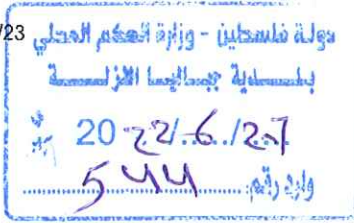 /23
دولة فلسطين - وزارة الحكم المحلي
بلدية جباليا النزلة
20 22/6/27
وارد رقم: 544